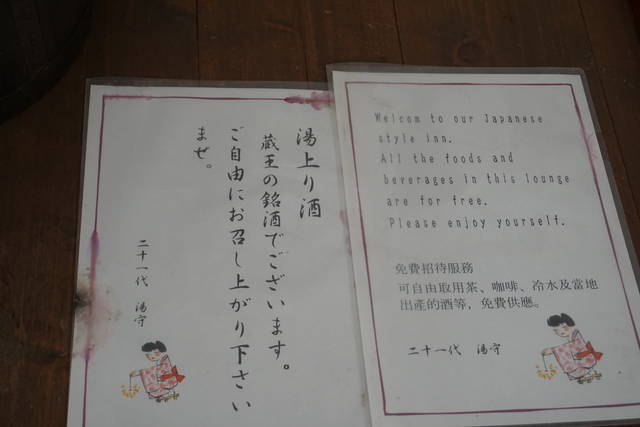 湯上り酒
蔵王の銘酒でございます。
ご自由にお召し上がり下さい
ませ。
二十一代 湯守
Welcom to our Japanese
style inn.
All the foods and
beverages in this lounge
are for free.
Please enjoy yourself.
免費招待服務
可自由取用茶、咖啡、冷水及當地
出產的酒等，免費供應。
二十一代 湯守